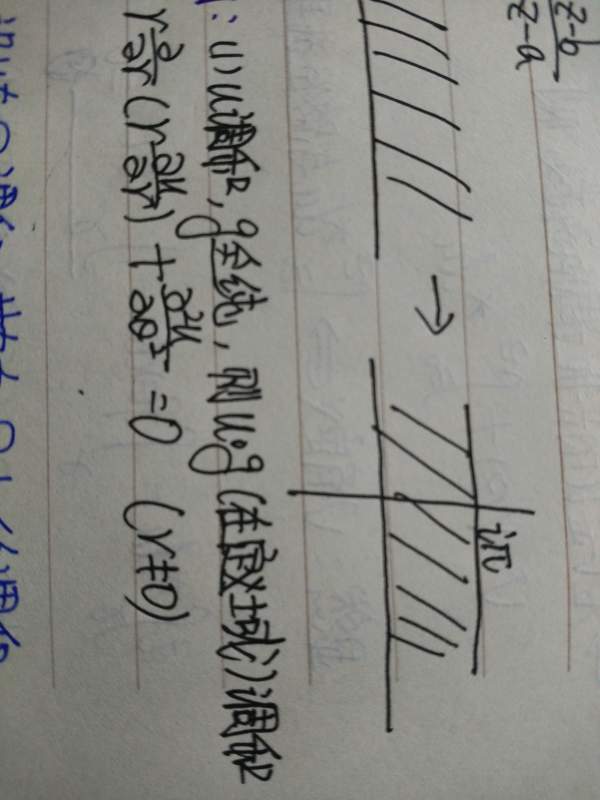 z-b
z-a
→
iπ
: (1) u调和, g全纯, 则u∘g(在定义域)调和
r∂/∂r(r∂u/∂r)+∂²u/∂θ²=0 (r≠0)